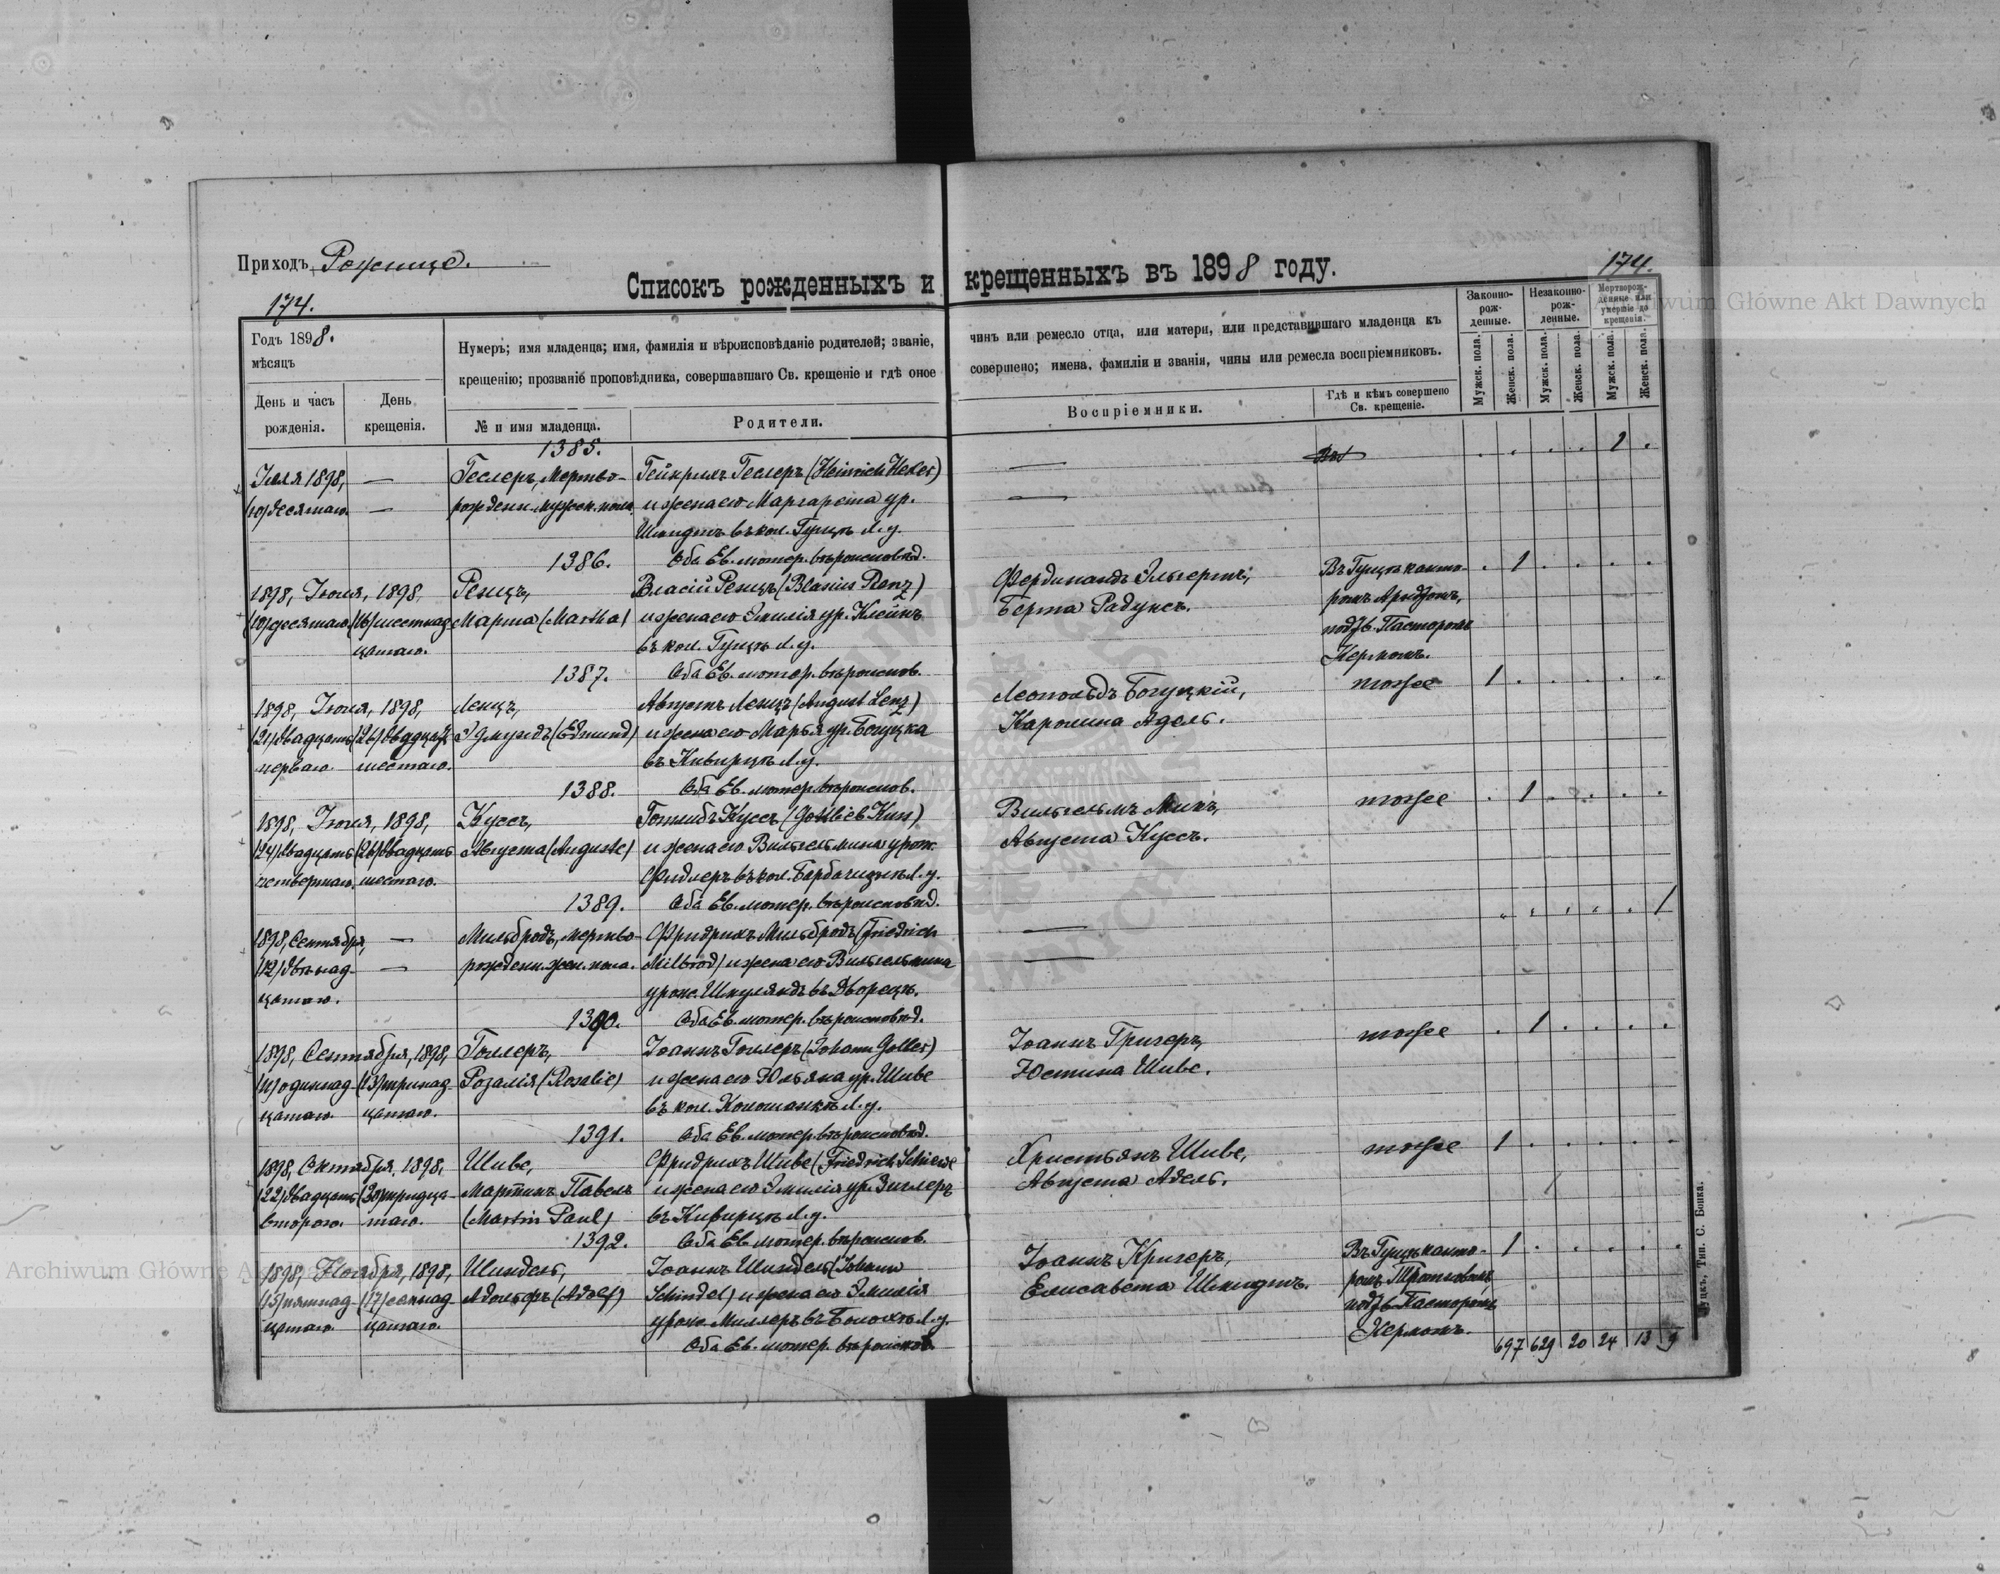 Приходъ Рожище.
Списокъ рожденныхъ и крещенныхъ въ 1898 году.
174.
174.
Годъ 1898.
мѣсяцъ
Нумеръ; имя младенца; имя, фамилія и вѣроисповѣданіе родителей; званіе,
крещенію; прозваніе проповѣдника, совершавшаго Св. крещеніе и гдѣ оное
чинъ или ремесло отца, или матери, или представившаго младенца къ
совершено; имена, фамиліи и званія, чины или ремесла воспріемниковъ.
Законно-
рож-
денные.
Незаконно-
рож-
ленные.
Мертворож-
денные или
умершіе до
крещенія.
День и часъ
рожденія.
День
крещенія.
№ и имя младенца.
Родители.
Воспріемники.
Гдѣ и кѣмъ совершено
Св. крещеніе.
Мужск. пола.
Женск. пола.
Мужск. пола.
Женск. пола.
Мужск. пола.
Женск. пола.
1385.
1898,
(10) десятаго.
Геслеръ, мертво-
рожденн. мужск. пола.
Гейнрихъ Геслеръ (Heinrich
и жена его Маргарета ур.
Шмидтъ въ кол. Гунцѣ Л. у.
Оба Ев. лютер. вѣроисповѣд.
1
1386.
1898, Іюня, 1898,
(10) десятаго (16) шестнад-
цатаго.
Ренцъ,
Марта (Martha)
Власій Ренцъ (Blasius Renz)
и жена его Эмилія ур. Клейнъ
въ кол. Гунцѣ Л. у.
Оба Ев. лютер. вѣроиспов.
Фердинандъ
Берта Радунсъ.
Въ Гунцѣ канто-
ромъ
подтв. Пасторомъ
Керномъ.
1
1387.
1898, Іюня, 1898,
(21) двадцать (26) двадцать
перваго. шестаго.
Ленцъ,
Эдмундъ (Edmund)
Августъ Ленцъ (August Lenz)
и жена его Марья ур. Богуцка
въ Киверцѣ Л. у.
Оба Ев. лютер. вѣроиспов.
Леопольдъ Богуцкій,
Каролина Адель.
тоже
1
1388.
1898, Іюня, 1898,
(24) двадцать (26) двадцать
четвертаго. шестаго.
Куссъ,
Августа (Auguste)
Готлибъ Куссъ (Gottlieb Kuss)
и жена его Вильгельмина урож.
Фидлеръ въ кол. Л. у.
Оба Ев. лютер. вѣроисповѣд.
Вильгельмъ Микъ,
Августа Куссъ.
тоже
1
1389.
1898, Сентября,
(12) двѣнад-
цатаго.
Мильбродъ, мертво-
рожденн. жен. пола.
Фридрихъ Мильбродъ (Friedrich
Milbrod) и жена его Вильгельмина
урож. въ Дворецъ.
Оба Ев. лютер. вѣроисповѣд.
1
1390.
1898, Сентября, 1898,
(11) одиннад- (13) тринад-
цатаго. цатаго.
Голлеръ,
Розалія (Rosalie)
Іоаннъ Голлеръ (Johann Goller)
и жена его Юльяна ур. Шиве
въ кол. Л. у.
Оба Ев. лютер. вѣроисповѣд.
Іоаннъ Григеръ,
Юстина Шиве.
тоже
1
1391.
1898, Октября, 1898,
(22) двадцать (30) тридца-
второго. таго.
Шиве,
Мартинъ Павелъ
(Martin Paul)
Фридрихъ Шиве (Friedrich Schiewe
и жена его Эмилія ур. Зиглеръ
въ Киверцѣ Л. у.
Оба Ев. лютер. вѣроиспов.
Христьянъ Шиве,
Августа Адель.
тоже
1
1392.
1898, Ноября, 1898,
(15) пятнад- (17) семнад-
цатаго. цатаго.
Шиндель,
Адольфъ (Adolf)
Іоаннъ Шиндель (Johann
Schindel) и жена его Эмилія
урож. Миллеръ въ Л. у.
Оба Ев. лютер. вѣроиспов.
Іоаннъ Кригеръ,
Елисавета Шмидтъ.
Въ Гунцѣ канто-
ромъ
подтв. Пасторомъ
Керномъ.
1
697 629 20 24 13 9
Луцкъ, Тип. С. Бонка.
Archiwum Główne Akt Dawnych
Archiwum Główne